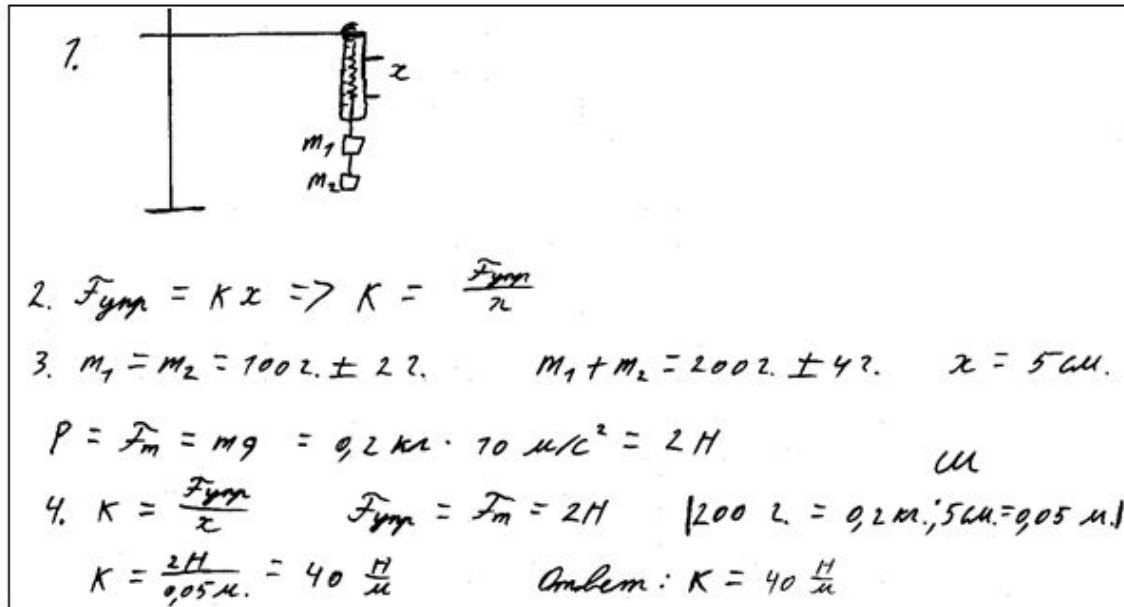 1.
x
m₁
m₂
2. Fупр = Kx => K = Fупр/x
3. m₁ = m₂ = 100 г. ± 2 г. m₁ + m₂ = 200 г. ± 4 г. x = 5 см.
P = Fт = mg = 0,2 кг · 10 м/с² = 2 Н
4. K = Fупр/x Fупр = Fт = 2Н |200 г. = 0,2 кг.; 5 см. = 0,05 м.|
K = 2Н/0,05 м. = 40 Н/м Ответ: K = 40 Н/м